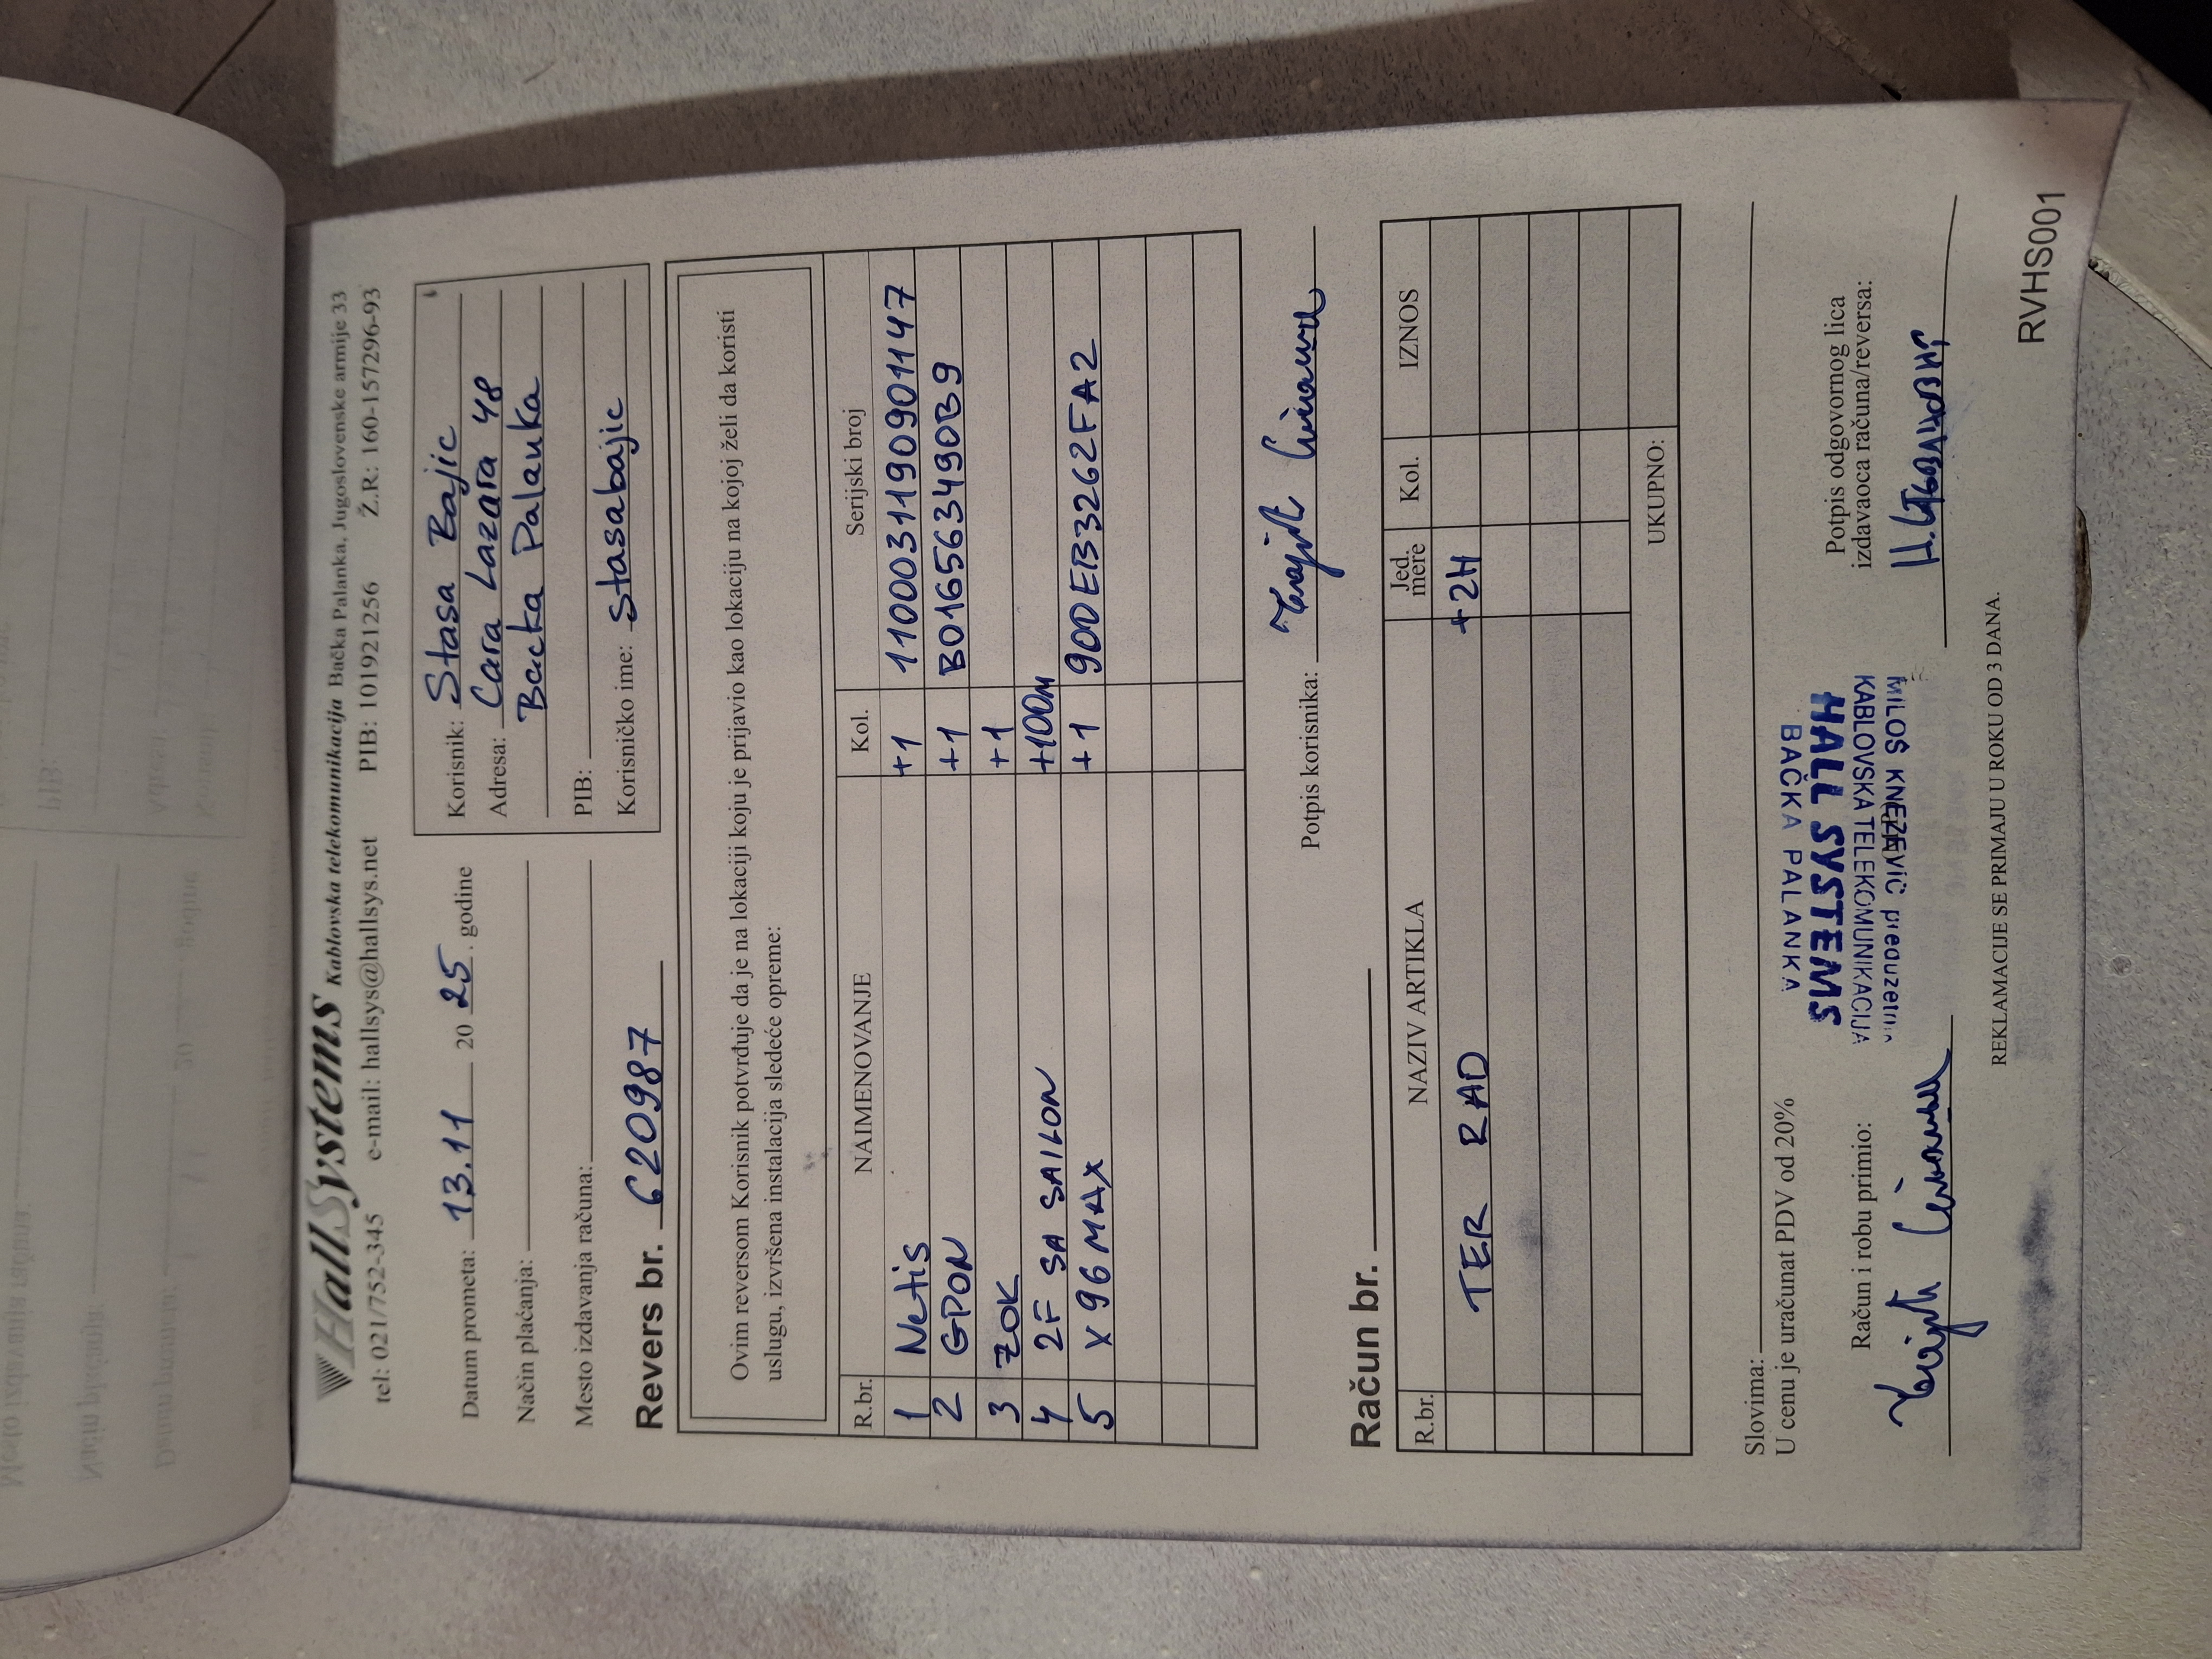 HallSystems Kablovska telekomunikacija Bačka Palanka, Jugoslovenske armije 33
tel: 021/752-345 e-mail: hallsys@hallsys.net PIB: 101921256 Ž.R: 160-157296-93
Datum prometa: 13.11 2025. godine
Način plaćanja:
Mesto izdavanja računa:
Korisnik: Stasa Bajic
Adresa: Cara Lazara 48
Backa Palanka
PIB:
Korisničko ime: stasabajic
Revers br. 620987
Ovim reversom Korisnik potvrđuje da je na lokaciji koju je prijavio kao lokaciju na kojoj želi da koristi
uslugu, izvršena instalacija sledeće opreme:
R.br. NAIMENOVANJE Kol. Serijski broj
1 Netis +1 1100031190901147
2 GPON +1 B016563490B9
3 ZOK +1
4 2F SA SAILON +100m
5 X96MAX +1 90DEB3262FA2
Potpis korisnika:
Račun br.
R.br. NAZIV ARTIKLA Jed. mere Kol. IZNOS
TER RAD +2H
UKUPNO:
Slovima:
U cenu je uračunat PDV od 20%
Račun i robu primio:
MILOŠ KNEŽEVIĆ preduzetn.
KABLOVSKA TELEKOMUNIKACIJA
HALL SYSTEMS
BAČKA PALANKA
Potpis odgovornog lica
izdavaoca računa/reversa:
REKLAMACIJE SE PRIMAJU U ROKU OD 3 DANA.
RVHS001